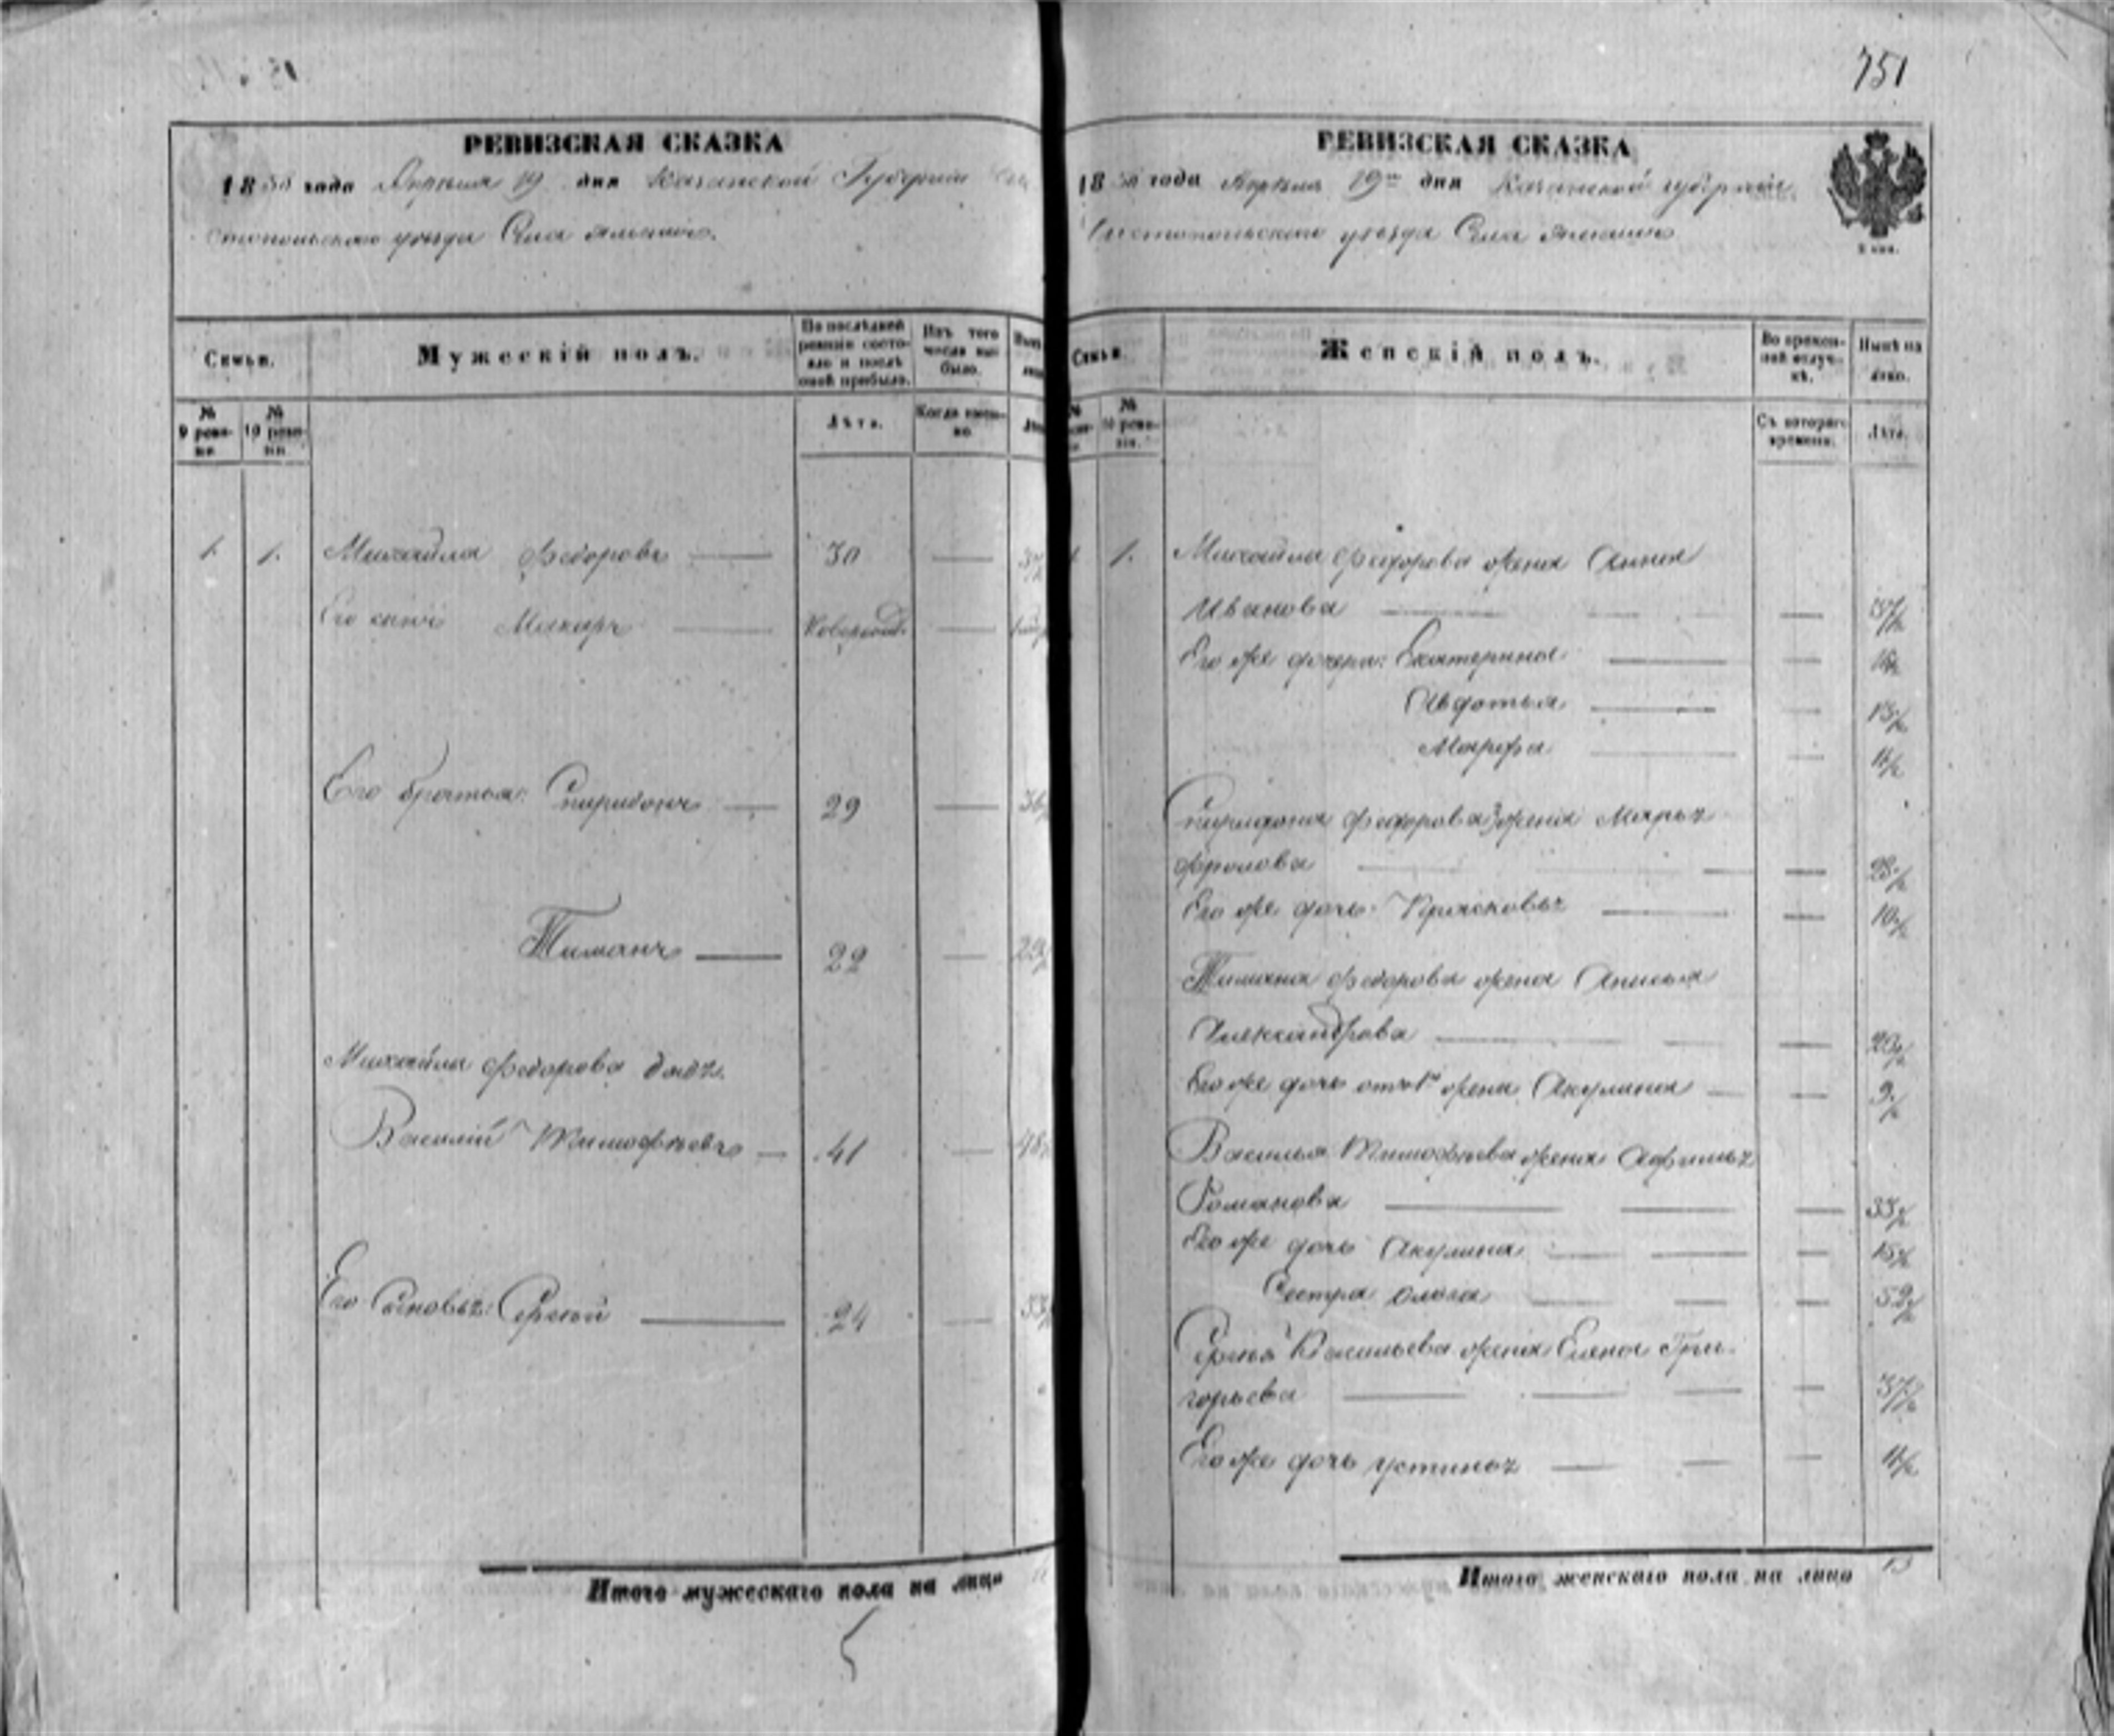 751
РЕВИЗСКАЯ СКАЗКА
1858 года Апреля 19 дня Казанской Губернии Чи
стопольскаго уезда Села
Семьи.
Мужескій полъ.
По последней ревизіи состояло и после оной прибыло.
Изъ того числа выбыло.
№ 9 ревизіи
№ 10 ревизіи
Лѣта.
Когда именно
1. 1. Михайла Федоровъ 30
Его сынъ Макаръ
Его братья: Спиридонъ 29 36
Тиманъ 22 29
Михайла Федорова дядя
Василій Тимофѣевъ 41 48
Его Сыновья: Сергѣй 24
Итого мужескаго пола на лицо
5
РЕВИЗСКАЯ СКАЗКА
1858 года Апреля 19го дня Казанской губерніи
Чистопольскаго уезда Села
Семьи.
Женскій полъ.
Во временной отлучкѣ.
Нынѣ на лицо.
№ 10 ревизіи.
Съ котораго времени.
Лѣта.
1. Михайла Федорова жена Анна
Иванова 37
Его же дочери: Екатерина 16
Авдотья 13
Марфа
Спиридона Федорова жена Марья
Фролова 28
Его же дочь Прасковья 10
Тимана Федорова жена Анисья
Александрова
Его же дочь отъ 1й жены Акулина 9
Василья Тимофѣева жена Афимья
Романова 33
Его же дочь Акулина 15
Сестра 52
Сергѣя Васильева жена Елена Гри-
горьева 37
Его же дочь Устинья
Итого женскаго пола на лицо 13